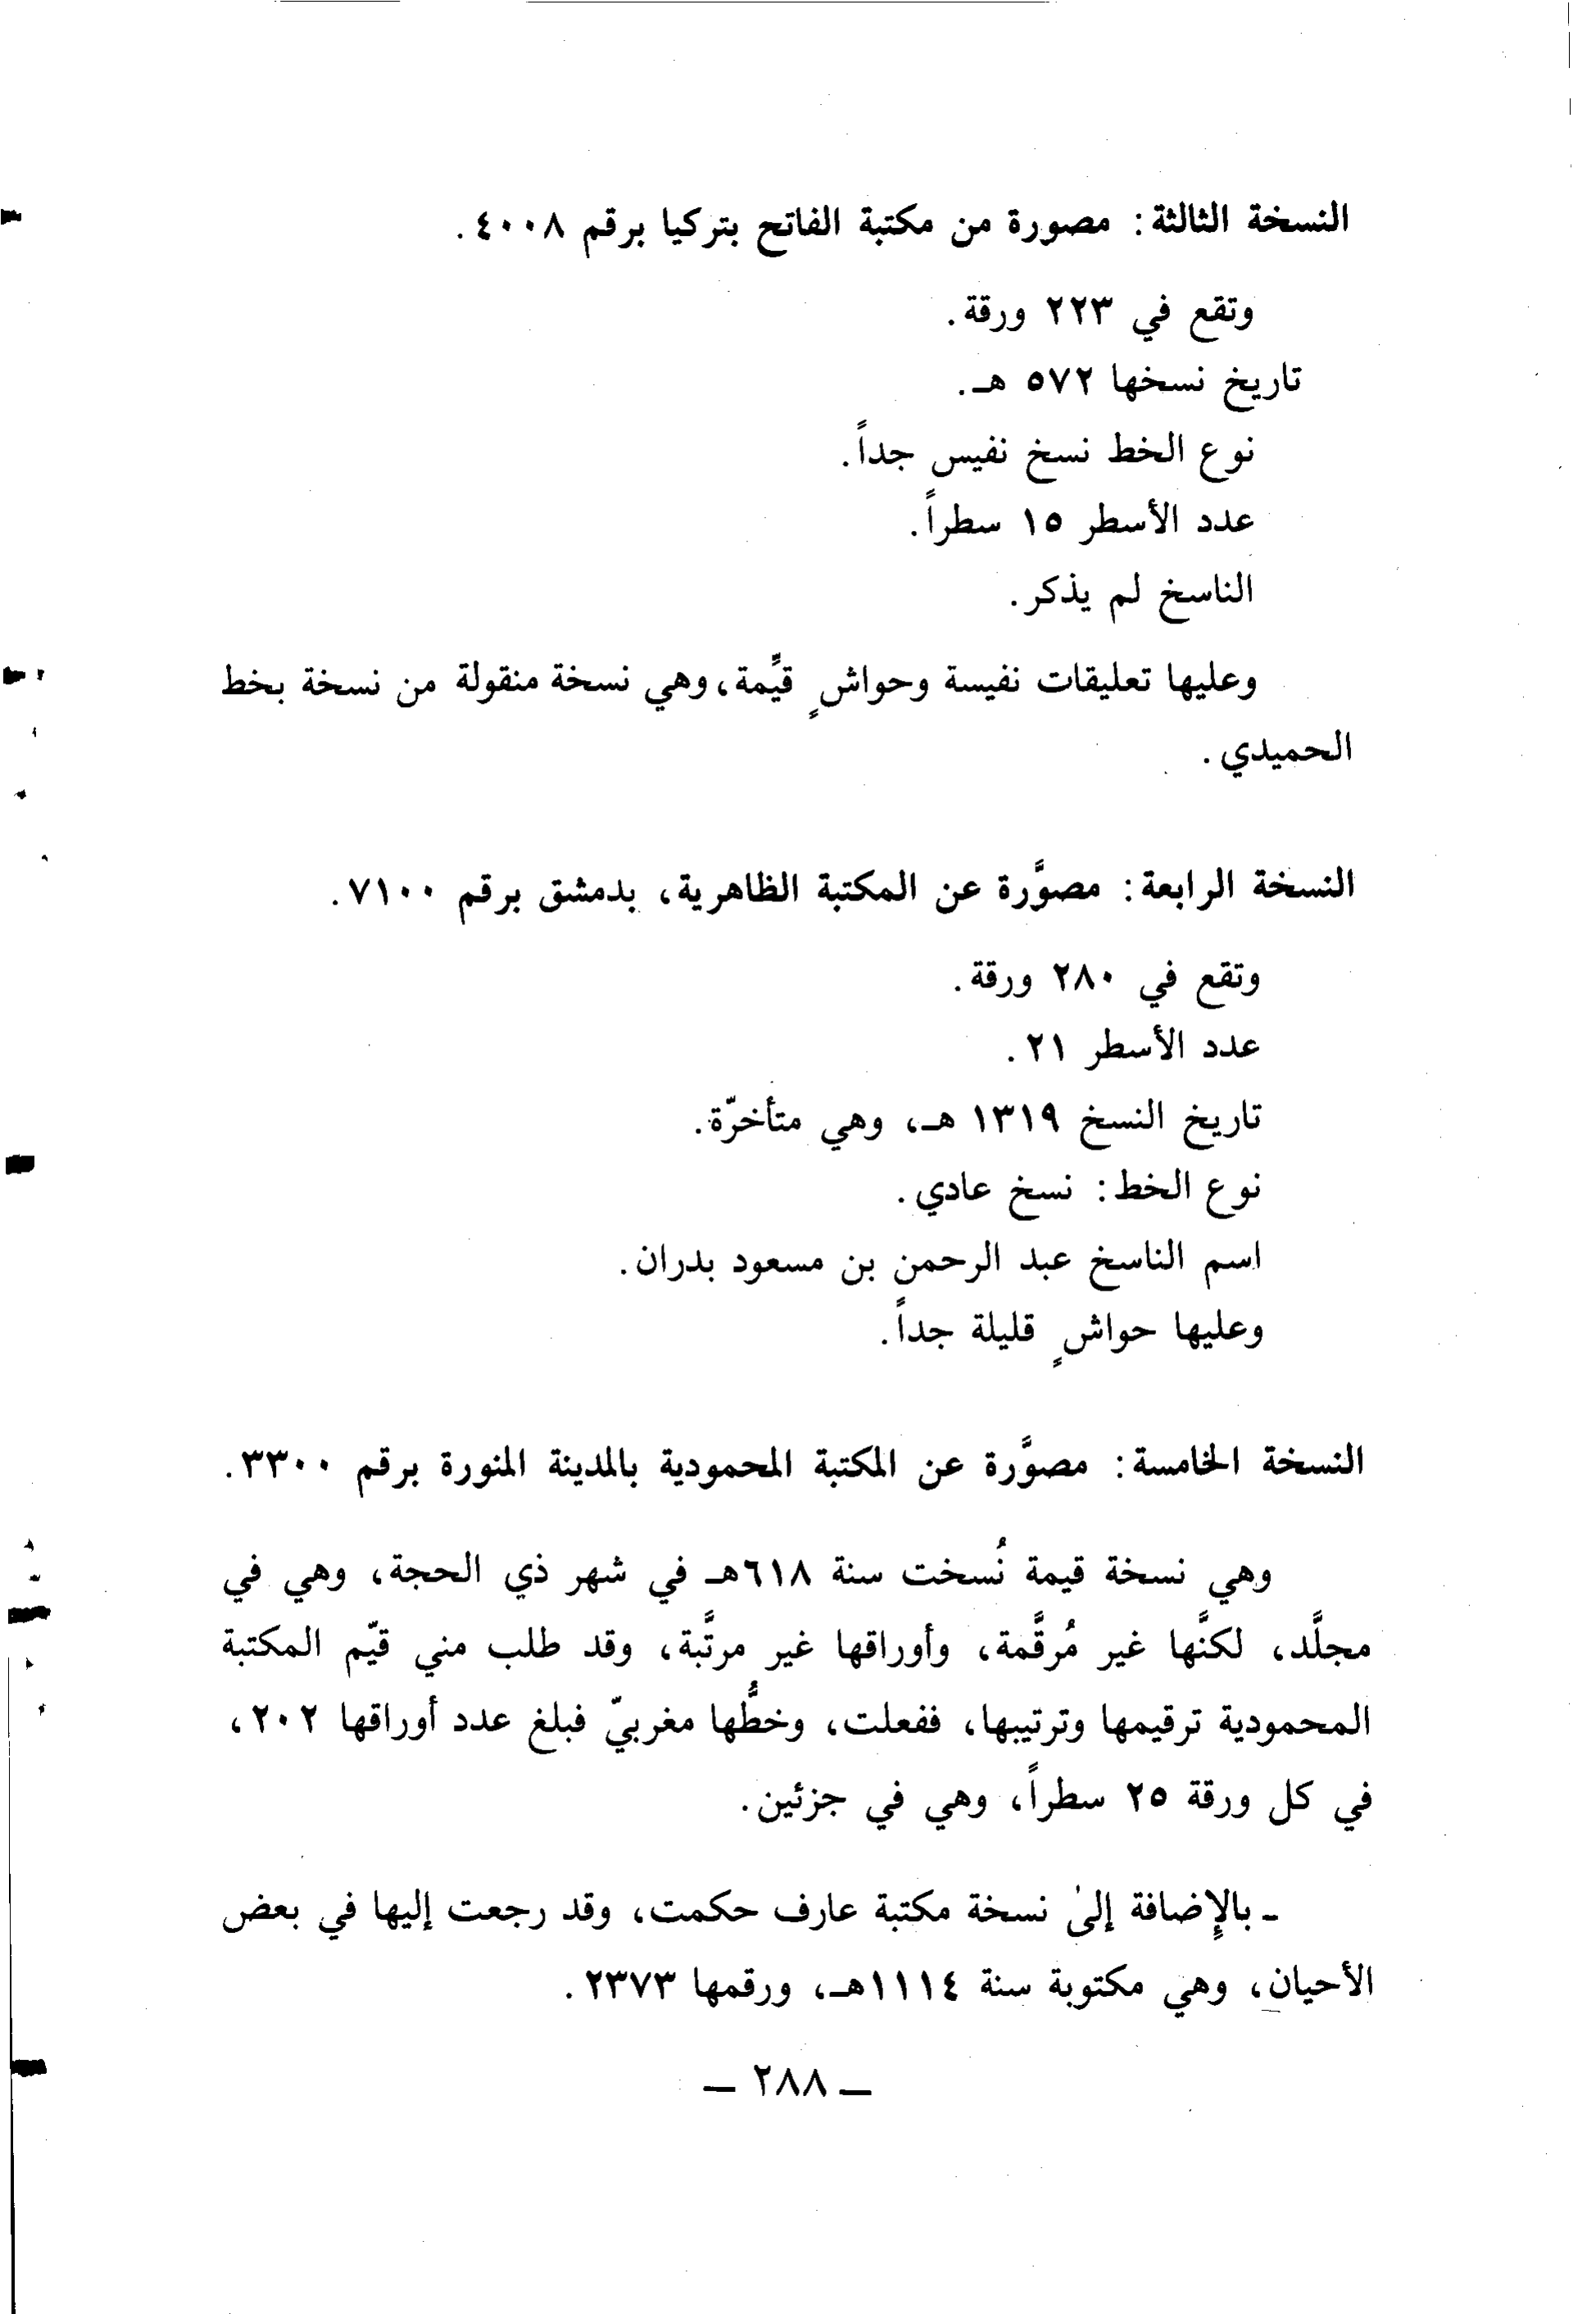 النسخة الثالثة: مصورة من مكتبة الفاتح بتركيا برقم ٤٠٠٨.
وتقع في ٢٢٣ ورقة.
تاريخ نسخها ٥٧٢ هـ.
نوع الخط نسخ نفيس جداً.
عدد الأسطر ١٥ سطراً.
الناسخ لم يذكر.
وعليها تعليقات نفيسة وحواشٍ قيِّمة، وهي نسخة منقولة من نسخة بخط
الحميدي.
النسخة الرابعة: مصوَّرة عن المكتبة الظاهرية، بدمشق برقم ٧١٠٠.
وتقع في ٢٨٠ ورقة.
عدد الأسطر ٢١.
تاريخ النسخ ١٣١٩ هـ، وهي متأخرّة.
نوع الخط: نسخ عادي.
اسم الناسخ عبد الرحمن بن مسعود بدران.
وعليها حواشٍ قليلة جداً.
النسخة الخامسة: مصوَّرة عن المكتبة المحمودية بالمدينة المنورة برقم ٣٣٠٠.
وهي نسخة قيمة نُسخت سنة ٦١٨هـ في شهر ذي الحجة، وهي في
مجلَّد، لكنَّها غير مُرقَّمة، وأوراقها غير مرتَّبة، وقد طلب مني قيّم المكتبة
المحمودية ترقيمها وترتيبها، ففعلت، وخطُّها مغربيّ فبلغ عدد أوراقها ٢٠٢،
في كل ورقة ٢٥ سطراً، وهي في جزئين.
- بالإِضافة إلىٰ نسخة مكتبة عارف حكمت، وقد رجعت إليها في بعض
الأحيان، وهي مكتوبة سنة ١١١٤هـ، ورقمها ٢٣٧٣.
— ٢٨٨ —